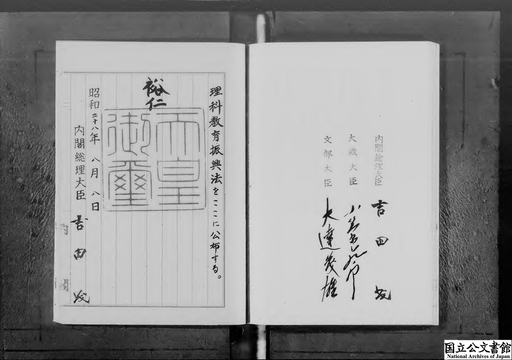 内閣総理大臣 吉田茂
大蔵大臣 小笠原三九郎
文部大臣 大達茂雄
理科教育振興法をここに公布する。
裕仁
天皇
御璽
昭和二十八年八月八日
内閣総理大臣 吉田茂
国立公文書館
National Archives of Japan